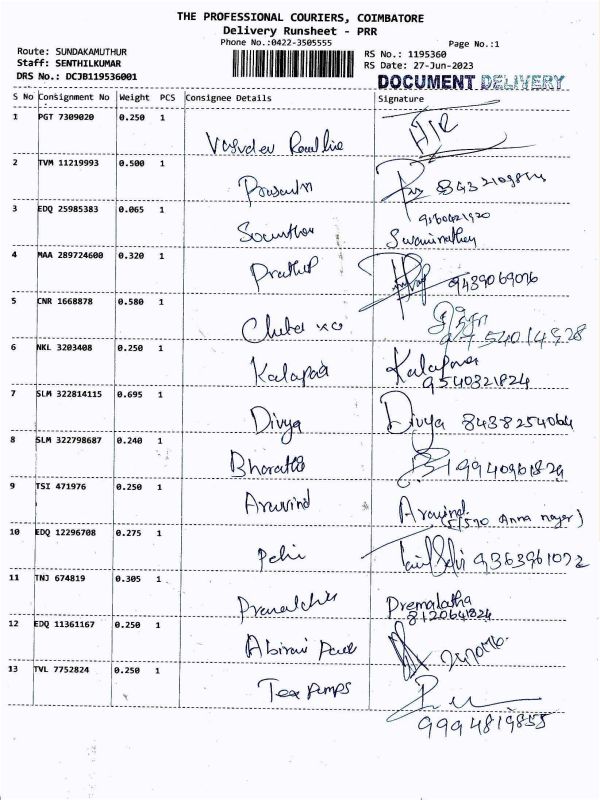 THE PROFESSIONAL COURIERS, COIMBATORE
Delivery Runsheet - PRR
Phone No.:0422-3505555
Page No.:1
Route: SUNDAKAMUTHUR
Staff: SENTHILKUMAR
DRS No.: DCJB119536001
RS No.: 1195360
RS Date: 27-Jun-2023
DOCUMENT DELIVERY
S No Consignment No Weight PCS Consignee Details Signature
1 PGT 7309020 0.250 1
2 TVM 11219993 0.500 1
Prasanth
3 EDQ 25985383 0.065 1
Swaminathan
4 MAA 289724600 0.320 1
Prathap 9489069076
5 CNR 1668878 0.580 1
6 NKL 3203408 0.250 1
Kalapana Kalapana
9540321824
7 SLM 322814115 0.695 1
Divya Divya 8438254064
8 SLM 322798687 0.240 1
Bharathi
9 TSI 471976 0.250 1
Aravind Aravind
(5/570 Anna nagar)
10 EDQ 12296708 0.275 1
9363961072
11 TNJ 674819 0.305 1
Premalatha
8120641824
12 EDQ 11361167 0.250 1
Abirami
13 TVL 7752824 0.250 1
Tex Pumps
9994819855